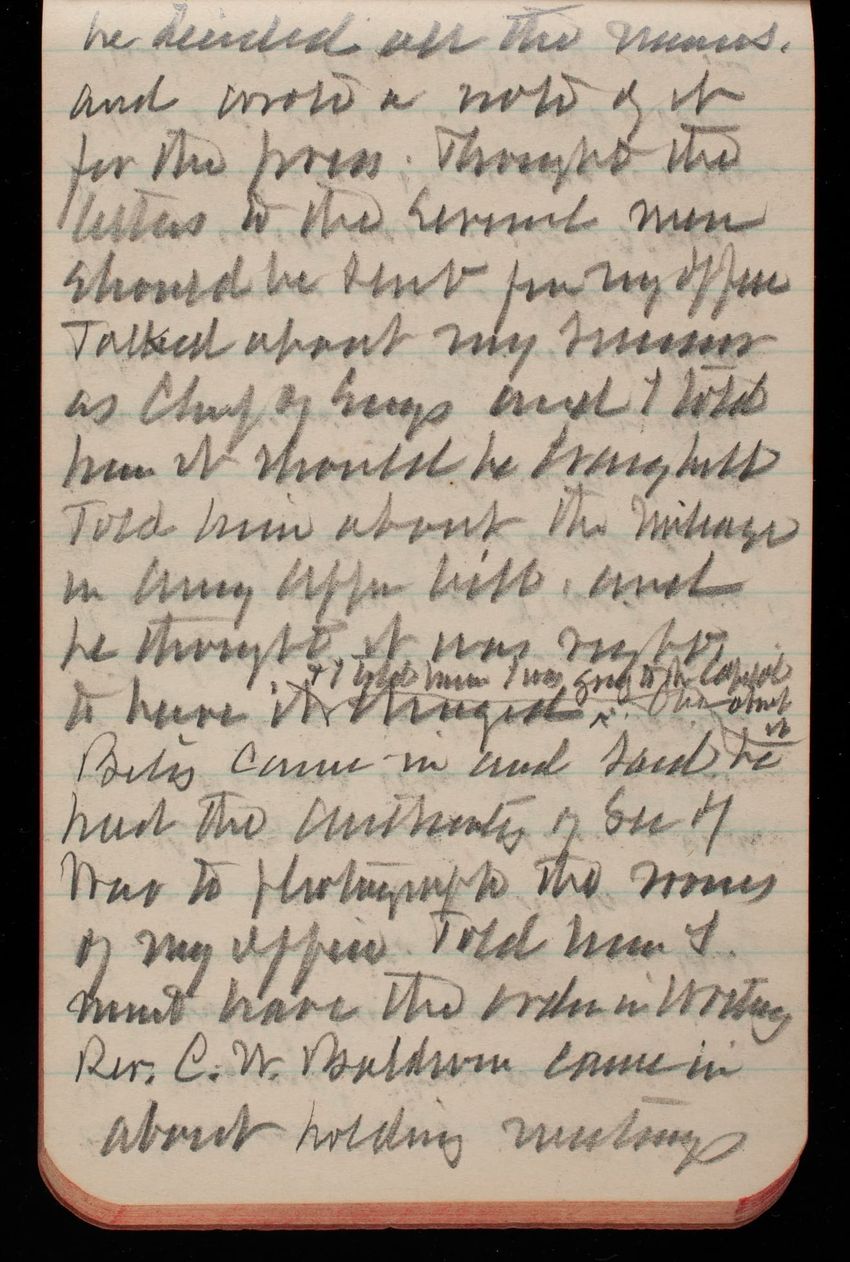 he decided all the names.
and wrote a note of it
for the press. Thought the
letters to the several men
should be sent from my office
Talked about my successor
as Chief of Engrs and I told
him it should be Craighill
Told him about the Mileage
in Army Appn bill. and
he thought it was right
& I told him I was going to the Capitol
to have it changed about
it
Betts came in and said he
had the authority of Sec of
War to photograph the rooms
of my office. Told him I
must have the order in writing
Rev. C. W. Baldwin came in
about holding meetings